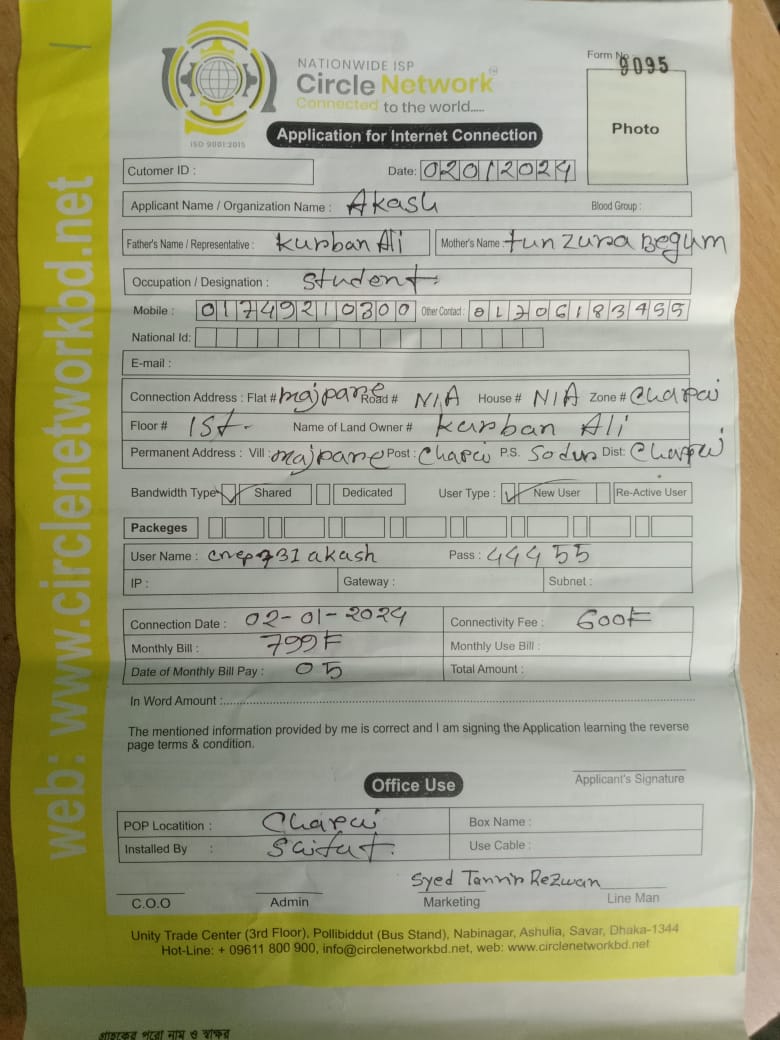 NATIONWIDE ISP
Circle Network
Connected to the world.....
ISO 9001:2015
Form No 9095
Photo
Application for Internet Connection
Cutomer ID :
Date: 02012024
Applicant Name / Organization Name : Akash Blood Group :
Father's Name / Representative : Kurban Ali Mother's Name : tunzura Begum
Occupation / Designation : Student
Mobile : 01749210300 Other Contact : 01706183455
National Id:
E-mail :
Connection Address : Flat # majpara Road # N/A House # N/A Zone # Chapai
Floor # 1St. Name of Land Owner # Kurban Ali
Permanent Address : Vill : majpara Post : Chapai P.S. Sodur Dist: Chapai
Bandwidth Type Shared Dedicated User Type : New User Re-Active User
Packeges
User Name : cnep731akash Pass : 44455
IP : Gateway : Subnet :
Connection Date : 02-01-2024 Connectivity Fee : 600৳
Monthly Bill : 799৳ Monthly Use Bill :
Date of Monthly Bill Pay : 05 Total Amount :
In Word Amount :
The mentioned information provided by me is correct and I am signing the Application learning the reverse
page terms & condition.
Applicant's Signature
Office Use
POP Locatition : Chapai Box Name :
Installed By : Saifut. Use Cable :
Syed Tanvir Rezwan
C.O.O Admin Marketing Line Man
Unity Trade Center (3rd Floor), Pollibiddut (Bus Stand), Nabinagar, Ashulia, Savar, Dhaka-1344
Hot-Line: + 09611 800 900, info@circlenetworkbd.net, web: www.circlenetworkbd.net
web: www.circlenetworkbd.net
গ্রাহকের পুরো নাম ও স্বাক্ষর